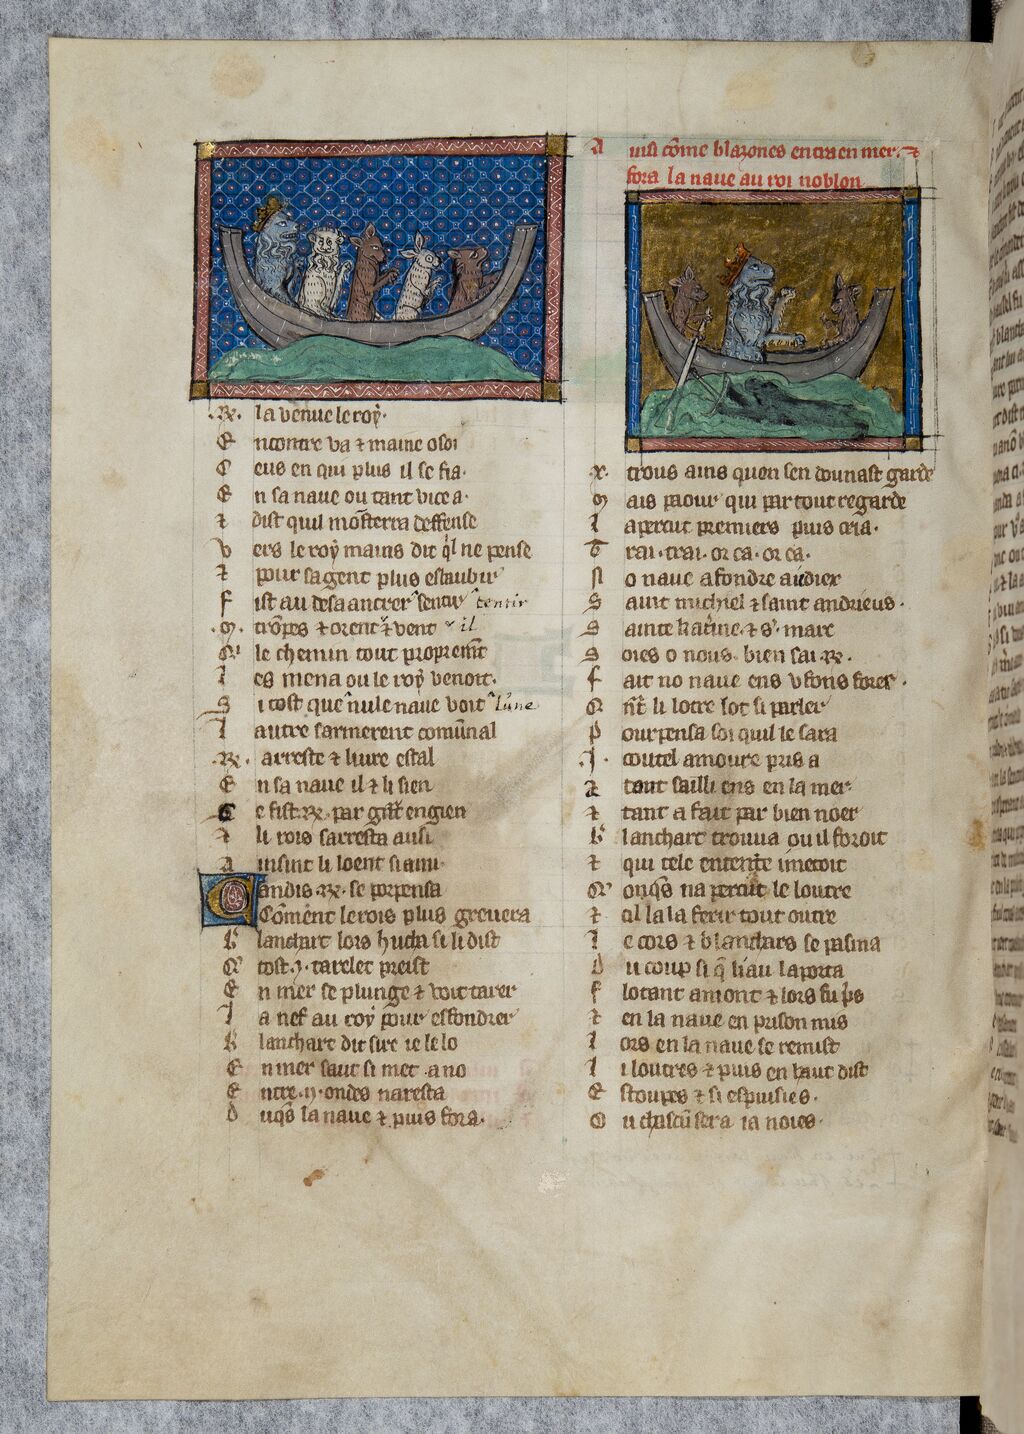 .R. la venue le roy.
E ncontre va ⁊ maine o soi
C eus en qui plus il se fia.
E n sa naue ou tant vice a.
⁊ dist quil mosterra deffense
v ers le roy mains dit ql ne pense
⁊ pour sagent plus esbaubir
f ist au desaancrer sentir tentir
.m. tropes ⁊ orent vent il
le chemin tout proprement
l es mena ou le roy venoit.
S i tost que nule naue voit lune
l autre sarmerent comunal
.R. arreste ⁊ liure estal
E n sa naue il ⁊ li sien
C e fist .R. par engien
⁊ li rois sarresta ausi
a insint li loent si ami
C andis .R. se porpensa
Coment le rois plus greuera
B lanchart lors hucha si li dist
tost .i. tarelet preist
E n mer se plunge ⁊ voit tarer
l a nef au roy pour effondrer
B lanchart dit sire ie le lo
E n mer saut si met a no
E ntre .ij. ondes naresta
d uqs la naue ⁊ puis fora.
A insi come blazones entra en mer ⁊
fora la naue au roi noblon
.x. trous ains quen sen dounast garde
m ais paour qui par tout regarde
l apercut premiers puis cria.
T rai. trai. or ca. or ca.
n o naue afondre
S aint michiel ⁊ saint andrieus.
S ainte katine. ⁊ s. marc
S oies o nous. bien sai .R.
f ait no naue ens vfons forer.
li lotre lot si parler
p ourpensa soi quil le sara
.j. coutel amoure pris a
a tant sailli ens en la mer
⁊ tant a fait par bien noer
B lanchart trouua ou il foroit
⁊ qui tele entente i metoit
onqs na percut le loutre
⁊ cil la la ferir tout outre
l e cors ⁊ blanchars se pasma
d u coup si q liau laporta
f lotant amont ⁊ lors fu pris
⁊ en la naue en prison mis
l ors en la naue se remist
l i loutres ⁊ puis en haut dist
E stoupes ⁊ si espuisies.
O u chascun sera ia noies.